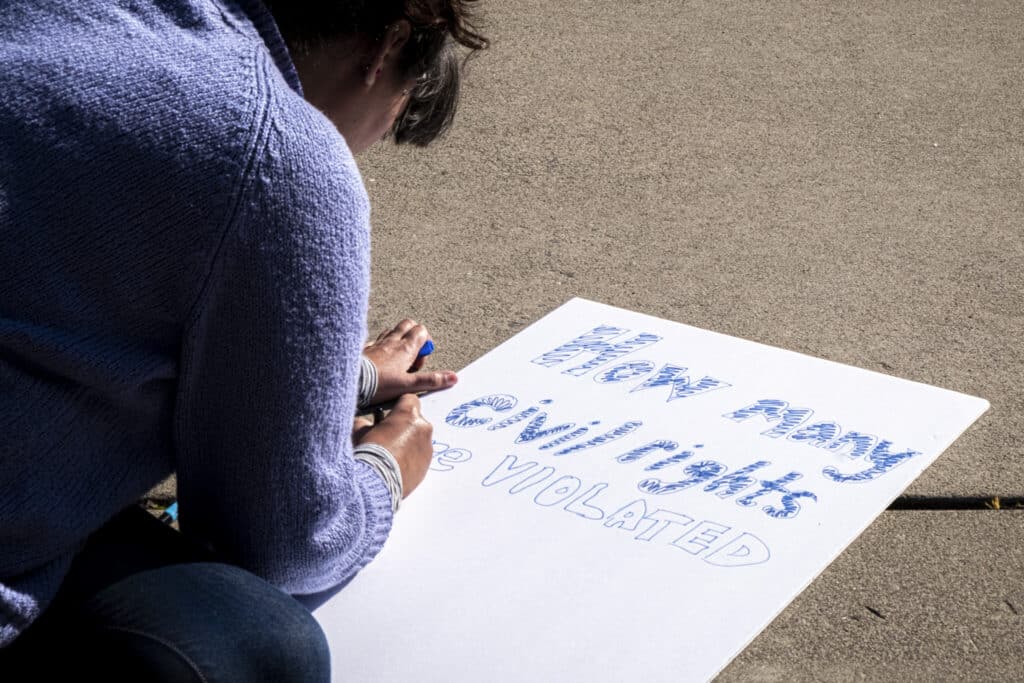 How Many
civil rights
VIOLATED